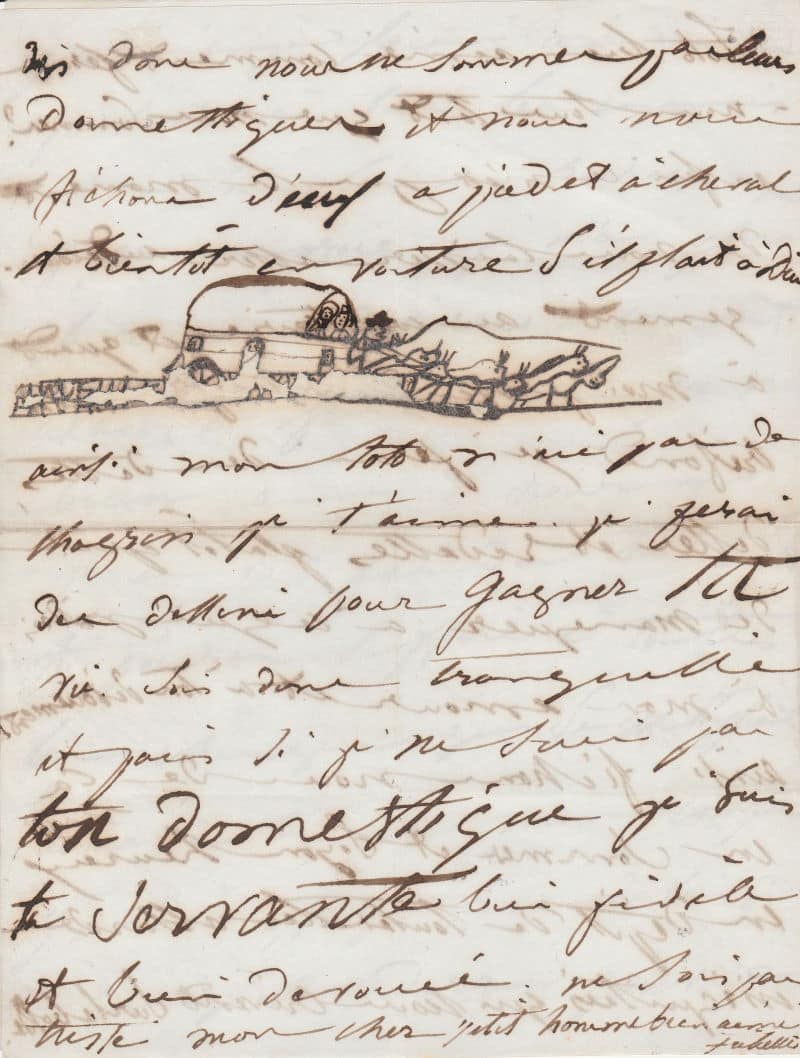 dis donc nous ne sommes pas leurs
Domestiques et nous nous
fichons d'eux à pied et à cheval
et bientôt en voiture s'il plait à Dieu
ainsi mon toto n'aie pas de
chagrin je t'aime. je ferai
des dessins pour gagner ta
vie. Sois donc tranquille
et puis si je ne suis pas
ton domestique je suis
ta servante bien fidèle
et bien devouée. ne sois pas
triste mon cher petit homme bien aimé